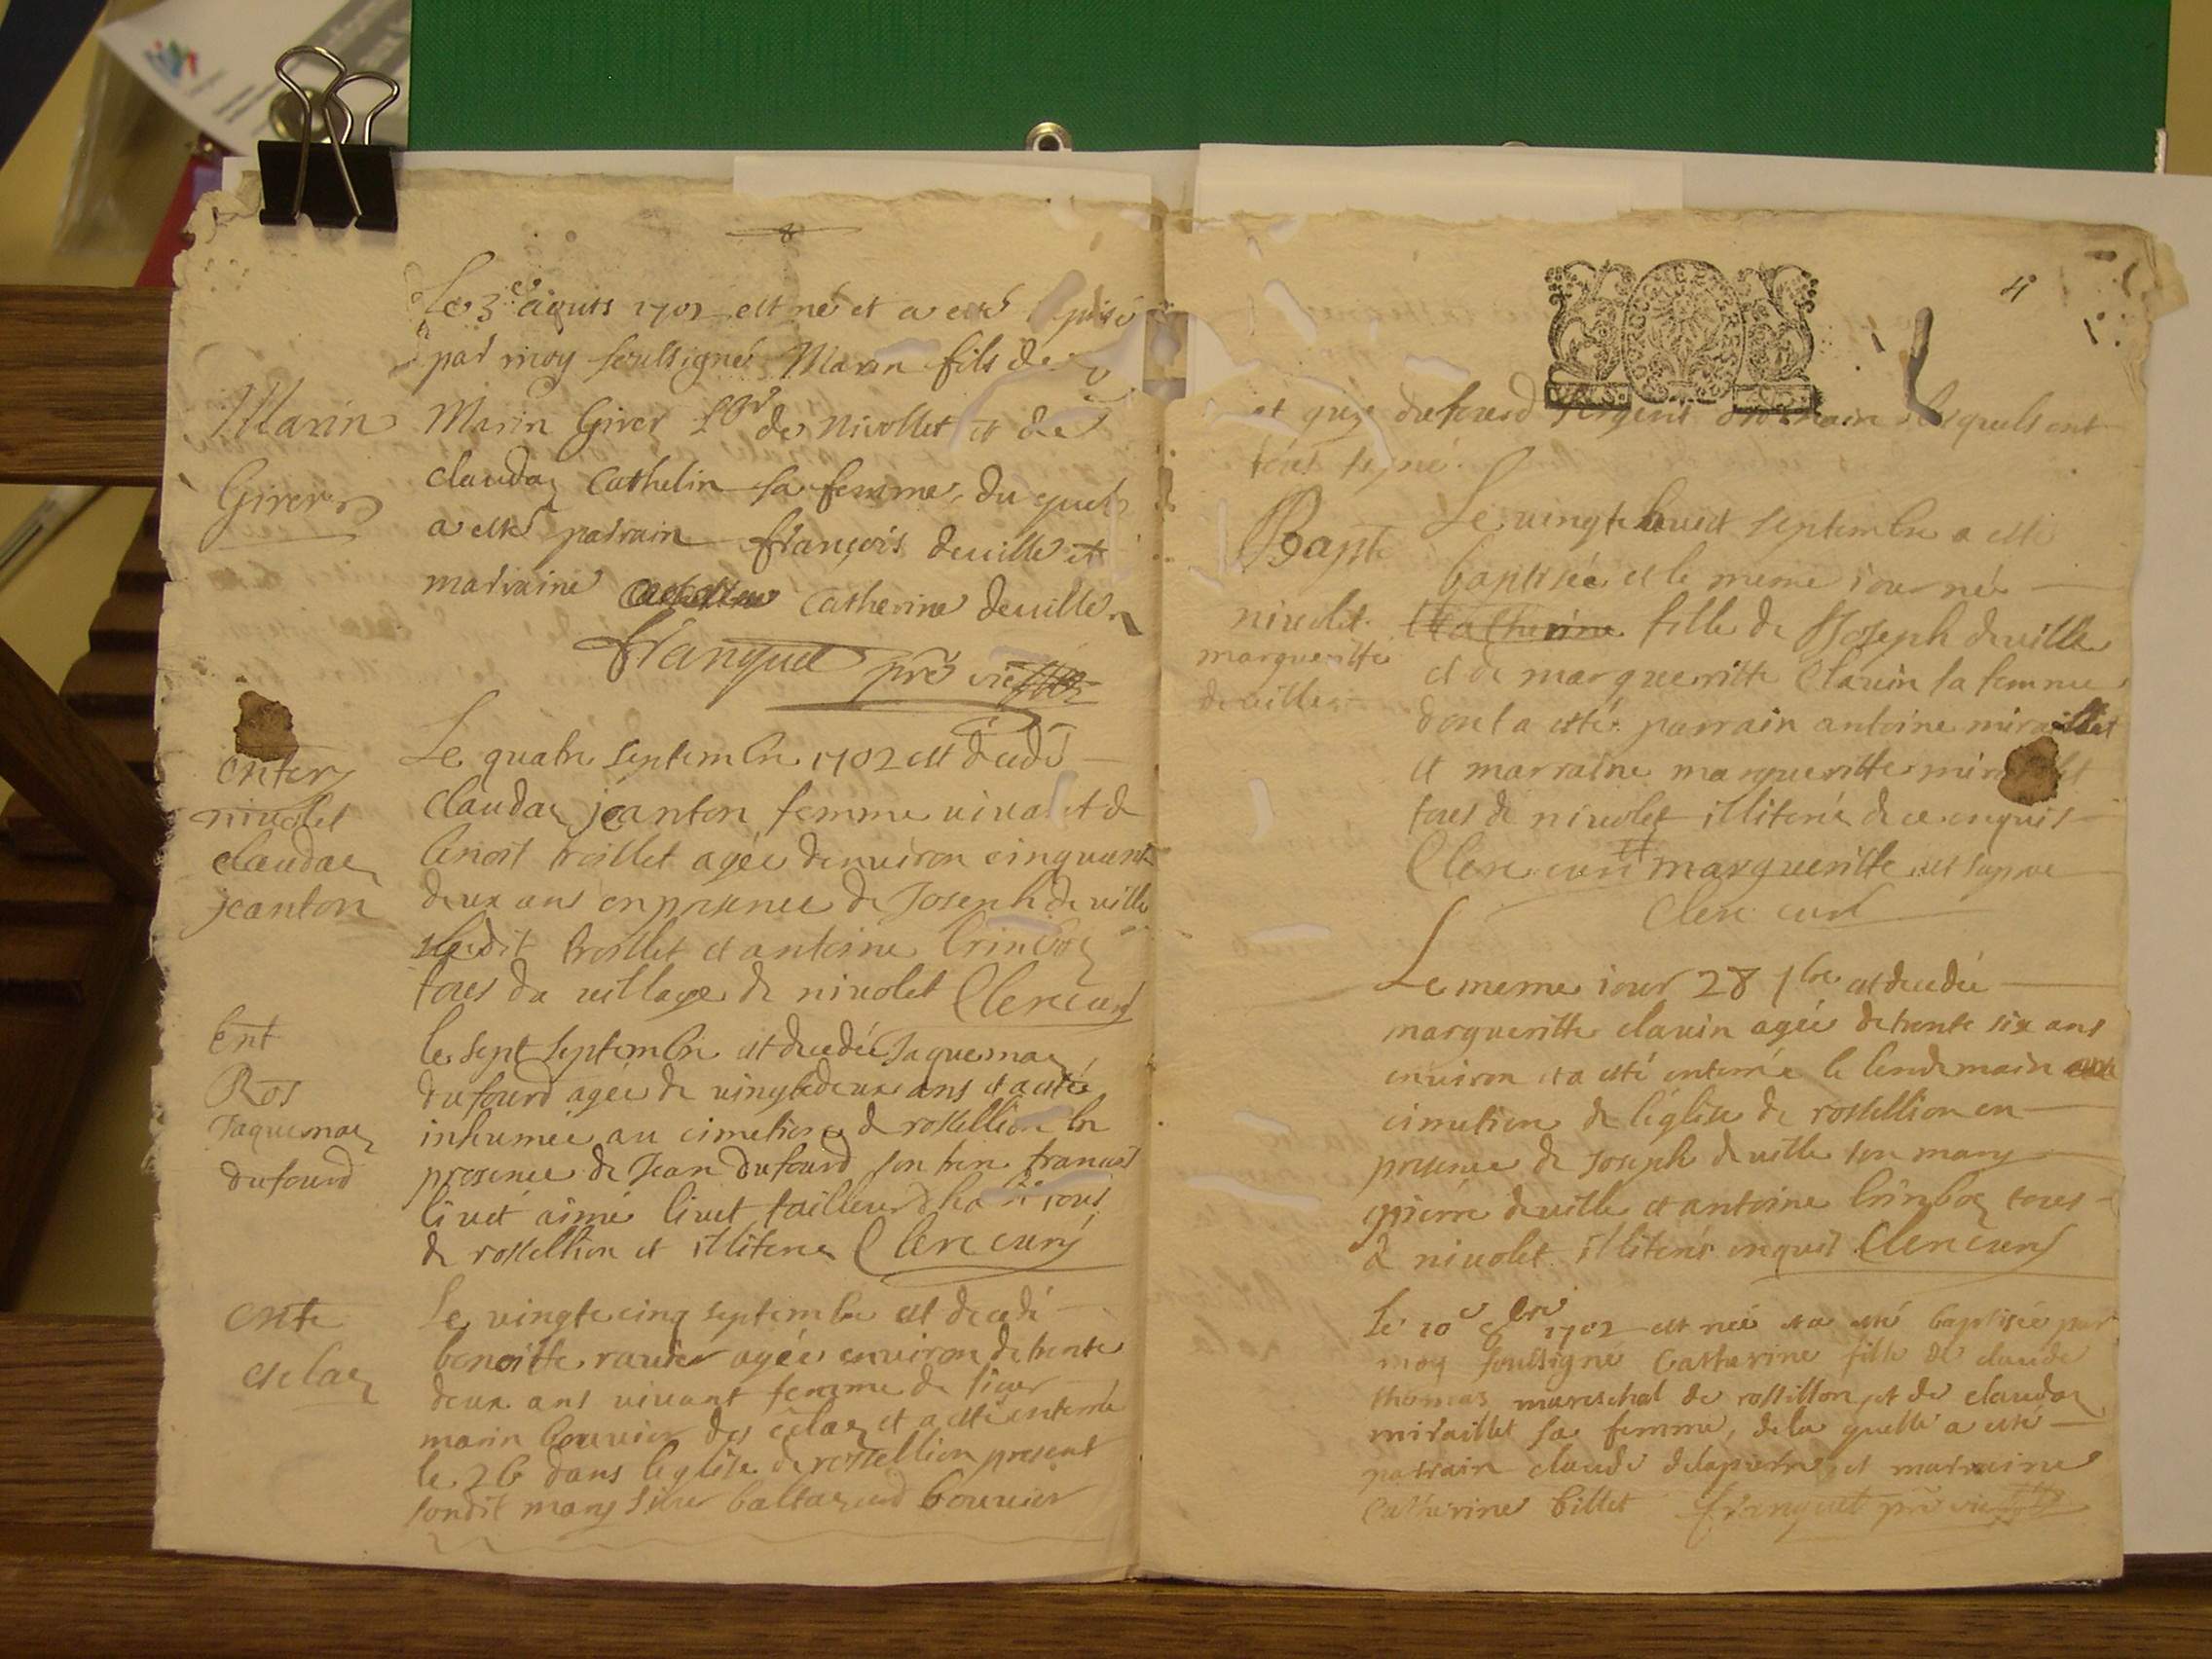 8
Le 3e aouts 1702 est né et a esté
par moy soussigné Marin fils de
Marin Girer de Nivollet et de
clauda Cathelin sa femme, du quel
a esté parrain françois deville et
marraine Catherine deville
franquet pre vic
Marin
Girer
Le quatre septembre 1702 est decedé
claudaz jeanton femme vivant de
benoit troillet agée denviron cinquante
deux ans en presence de Joseph de ville
ledit troillet et antoine brinboz
tous du village de nivolet Clerc curé
enter
nivolet
claudaz
jeanton
le sept septembre est decedée Jaquemaz
dufourd agée de vingtedeux ans et a esté
inhumée au cimetiere de rossellion en
presence de Jean dufourd son frere francois
livet aimé livet tailleur tous
de rossellion et illiteré Clerc curé
Ent
Ros
Jaquemaz
dufourd
Le vingtecinq septembre est decedé
benoitte agée environ de trente
deux ans vivant femme de sieur
marin bouvier des et a esté enterré
le 26 dans leglise de rossellion present
sondit mary sieur baltazard bouvier
ente
4
et guy dufourd sergent ordinaire lesquels ont
tous signé.
Le vingt huict septembre a esté
baptisée et le meme iour née
Catherine fille de Joseph deville
et de margueritte Clavin sa femme
dont a esté parrain antoine miraillet
et marraine margueritte
tous de nivolet illiteré de ce enquis
Clerc curé margueritte
Clerc curé
Bapt
nivolet
margueritte
deville
Le meme iour 28 7bre est decedée
margueritte clavin agée de trente six ans
environ et a esté enterrée le lendemain au
cimetiere de léglise de rossellion en
presence de Joseph deville son mary
pierre deville et antoine brinboz tous
de nivolet illiterés enquis Clerc curé
Le 10e 8bre 1702 est née et a esté baptisée par
moy soussigné Catherine fille de claude
thomas mareschal de rossillon et de claudaz
miraillet sa femme, de la quelle a esté
parrain claude delapierre et marraine
Catherine billet franquet pre vic